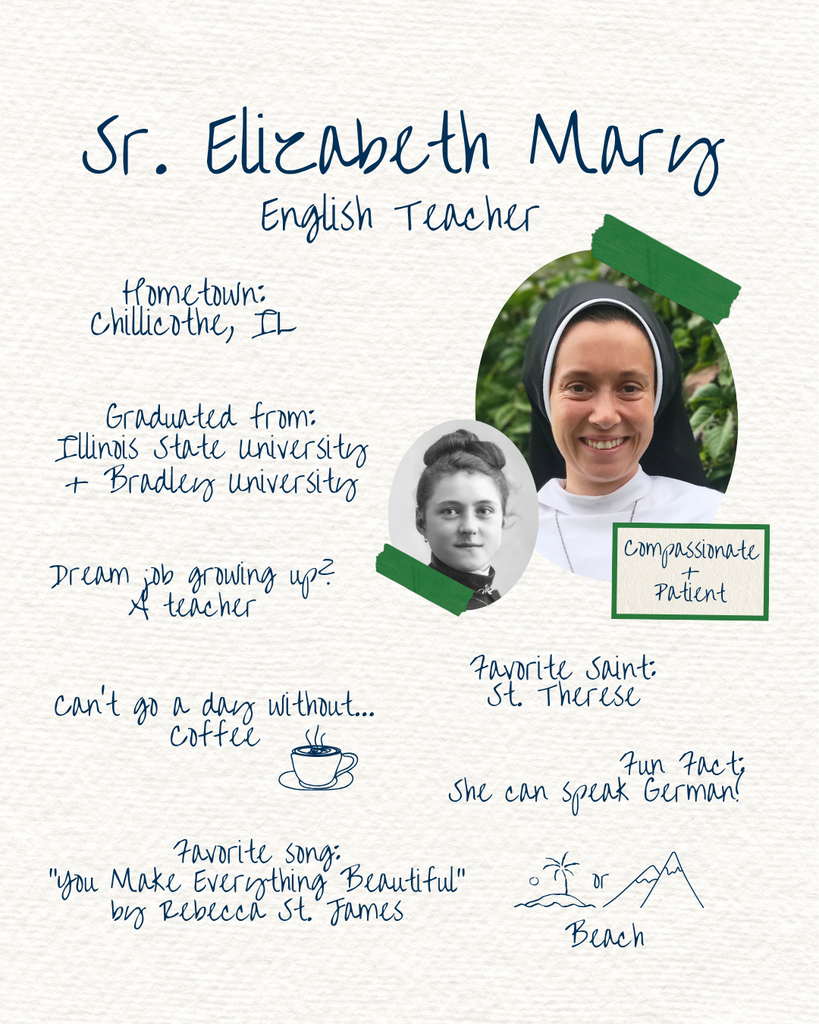 Sr. Elizabeth Mary
English Teacher
Hometown:
Chillicothe, IL
Graduated from:
Illinois State University
+ Bradley University
Dream job growing up?
A teacher
Can't go a day without...
Coffee
Favorite song:
"You Make Everything Beautiful"
by Rebecca St. James
Compassionate
+
Patient
Favorite Saint:
St. Therese
Fun Fact:
She can speak German!
or
Beach